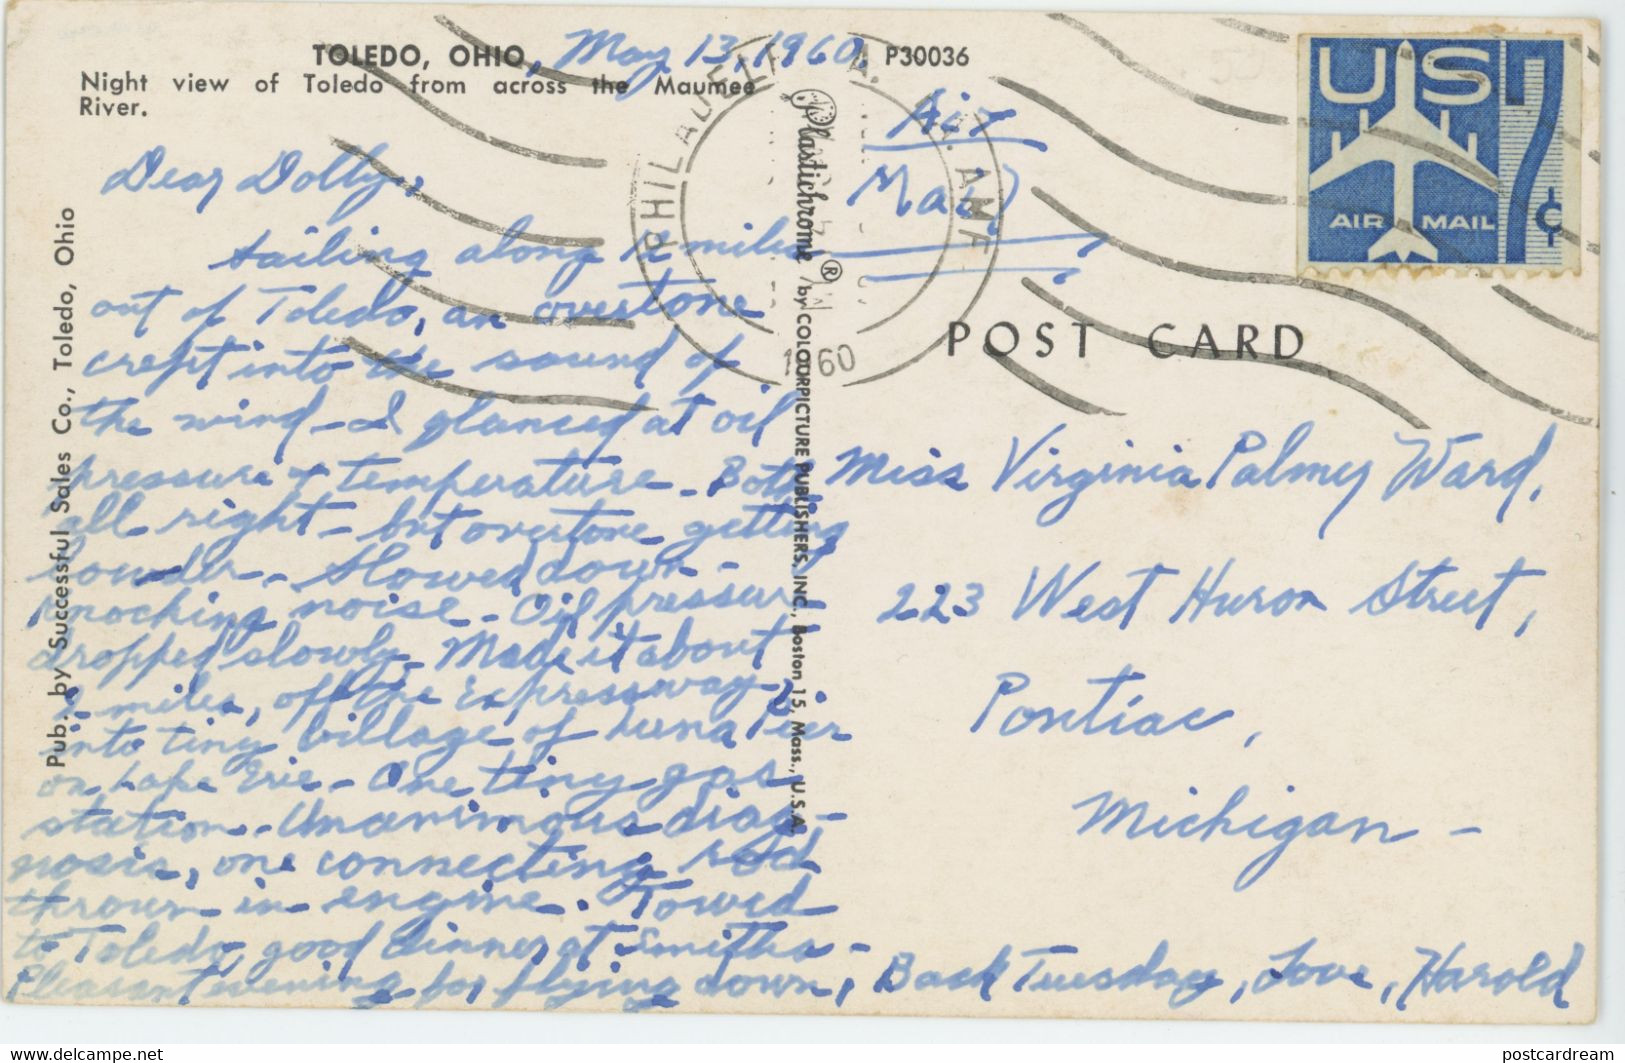 TOLEDO, OHIO, May 13, 1960. P30036
Night view of Toledo from across the Maumee
River.
Dear Dolly:
Sailing along 12 miles
out of Toledo, an overtone
crept into the sound of
the wind - I glanced at oil
pressure + temperature - Both
all right - but overtone getting
louder - Slowed down -
knocking noise - Oil pressure
dropped slowly. Made it about
2 miles, off the Expressway,
into tiny village of Luna Pier
on Lake Erie - One tiny gas
station - Unanimous diag-
nosis, one connecting rod
thrown in engine. Towed
to Toledo, good dinner at Smiths -
Pleasant evening for flying down,
Back Tuesday, Love, Harold
Pub. by Successful Sales Co., Toledo, Ohio
Plastichrome ® by COLOURPICTURE PUBLISHERS, INC., Boston 15, Mass., U.S.A.
PHILADELPHIA, PA. AMF
1960
Air
Mail
US 7¢
AIR MAIL
POST CARD
Miss Virginia Palmer Ward,
223 West Huron Street,
Pontiac,
Michigan -
https://www.delcampe.net
postcardream